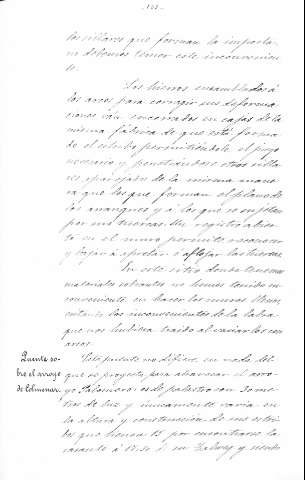 los sillares que forman la imposta
no debemos temer este inconvenien
te.
Los hierros ensamblados á
los arcos para corregir sus deforma
ciones van encerrados en cajas de la
misma fábrica de que está forma
do el estribo permitiéndole el juego
necesario y penetrándose otros silla
res aparejados de la misma mane
ra que los que forman el plano de
los arranques y á los que se sujetan
por sus tuercas. Un registro abier
to en el muro permite reconocer
y bajar á apretar ó aflojar las tuercas.
En este sitio donde tenemos
materiales sobrantes no hemos tenido in
conveniente en hacer los muros llenos
evitando los inconvenientes de la labra
que nos hubiera traido al variar los con
arcos.
Puente so-
bre el arroyo
de Colmenar.
Este puente no difiere en nada del
que se proyecta para atravesar el arro-
yo Palomero: es de palastro con
tros de luz y unicamente varia en
la altura y construccion de sus estri
bos que tienen 15 por encontrarse la
rasante á en y siendo